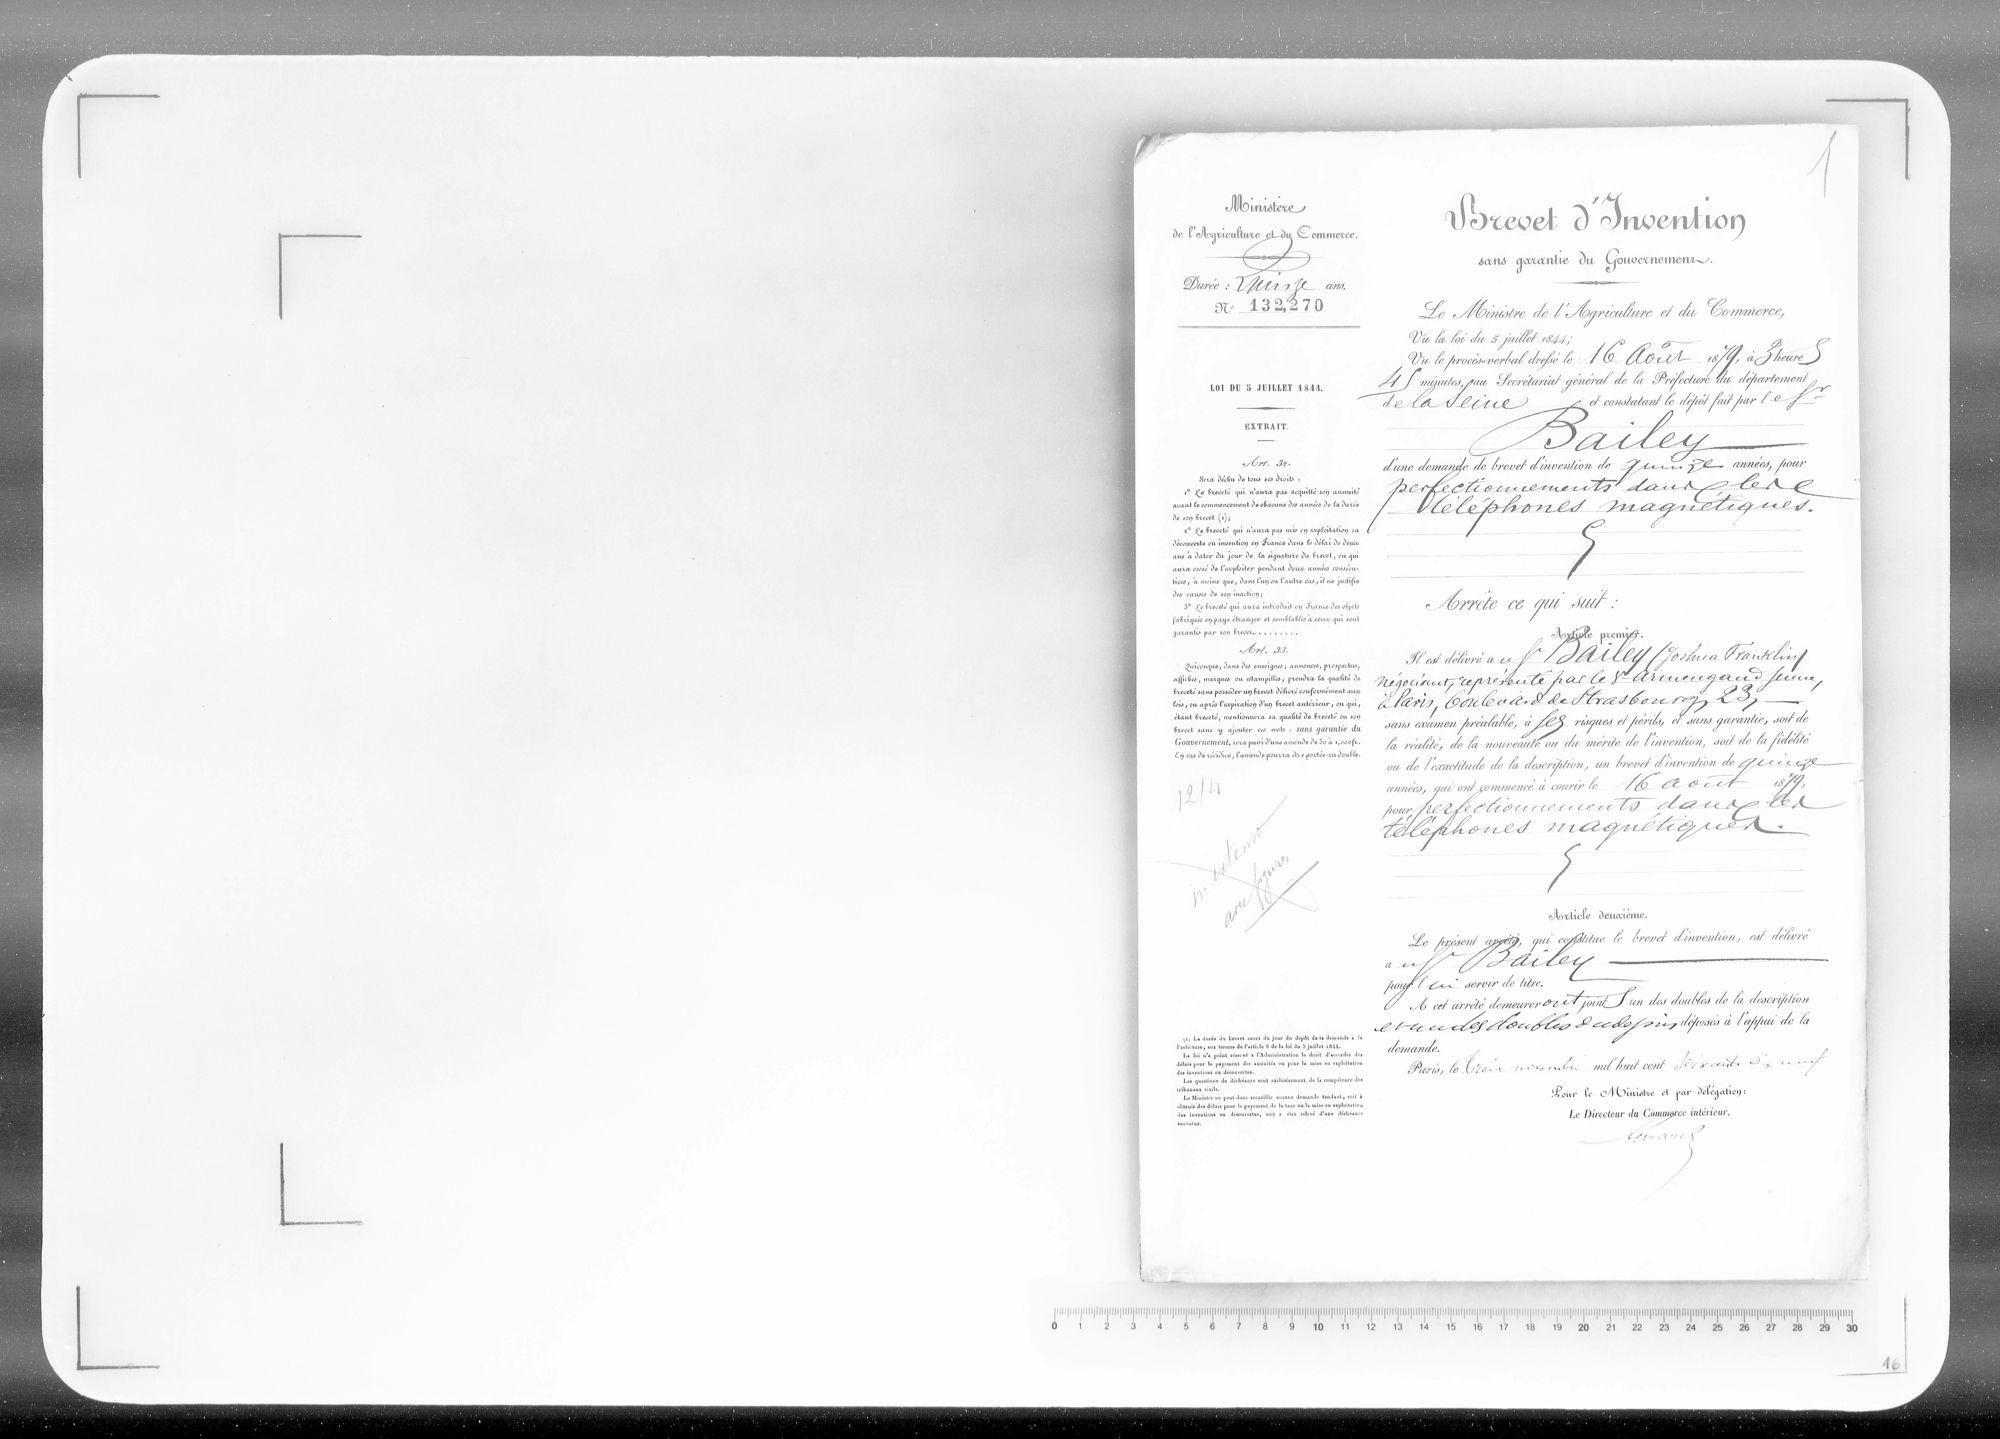 1
Ministère
de l'Agriculture et du Commerce.
Durée : Quinze ans.
N° 132,270
LOI DU 5 JUILLET 1844.
EXTRAIT.
Art. 32.
Sera déchu de tous ses droits :
1° Le breveté qui n'aura pas acquitté son annuité
avant le commencement de chacune des années de la durée
de son brevet (1);
2° Le breveté qui n'aura pas mis en exploitation sa
découverte ou invention en France dans le délai de deux
ans à dater du jour de la signature du brevet, ou qui
aura cessé de l'exploiter pendant deux années consécu-
tives, à moins que, dans l'un ou l'autre cas, il ne justifie
des causes de son inaction;
3° Le breveté qui aura introduit en France des objets
fabriqués en pays étranger et semblables à ceux qui sont
garantis par son brevet........
Art. 33.
Quiconque, dans des enseignes, annonces, prospectus,
affiches, marques ou estampilles, prendra la qualité de
breveté sans posséder un brevet délivré conformément aux
lois, ou après l'expiration d'un brevet antérieur, ou qui,
étant breveté, mentionnera sa qualité de breveté ou son
brevet sans y ajouter ces mots : sans garantie du
Gouvernement, sera puni d'une amende de 50 à 1,000 fr.
En cas de récidive, l'amende pourra être portée au double.
12/4
in extenso
avec figures
(1) La durée du brevet court du jour du dépôt de la demande à la
Préfecture, aux termes de l'article 8 de la loi du 5 juillet 1844.
La loi n'a point réservé à l'Administration le droit d'accorder des
délais pour le payement des annuités ou pour la mise en exploitation
des inventions ou découvertes.
Les questions de déchéance sont exclusivement de la compétence des
tribunaux civils.
Le Ministre ne peut donc accueillir aucune demande tendant, soit à
obtenir des délais pour le payement de la taxe ou la mise en exploitation
des inventions ou découvertes, soit à être relevé d'une déchéance
encourue.
Brevet d'Invention
sans garantie du Gouvernement.
Le Ministre de l'Agriculture et du Commerce,
Vu la loi du 5 juillet 1844;
Vu le procès-verbal dressé le 16 Août 1879, à 3 heures
45 minutes, au Secrétariat général de la Préfecture du département
de la Seine et constatant le dépôt fait par le Sr
Bailey
d'une demande de brevet d'invention de quinze années, pour
perfectionnements dans les
téléphones magnétiques.
Arrête ce qui suit :
Article premier.
Il est délivré au Sr Bailey (Joshua Franklin)
négociant, représenté par le Sr Armengaud jeune,
à Paris, Boulevard de Strasbourg, 23,
sans examen préalable, à ses risques et périls, et sans garantie, soit de
la réalité, de la nouveauté ou du mérite de l'invention, soit de la fidélité
ou de l'exactitude de la description, un brevet d'invention de quinze
années, qui ont commencé à courir le 16 août 1879,
pour perfectionnements dans les
téléphones magnétiques.
Article deuxième.
Le présent arrêté, qui constitue le brevet d'invention, est délivré
au Sr Bailey
pour lui servir de titre.
A cet arrêté demeureront joints un des doubles de la description
et un des doubles du dessin déposés à l'appui de la
demande.
Paris, le trois novembre mil huit cent soixante dix neuf
Pour le Ministre et par délégation:
Le Directeur du Commerce intérieur,
0 1 2 3 4 5 6 7 8 9 10 11 12 13 14 15 16 17 18 19 20 21 22 23 24 25 26 27 28 29 30
16